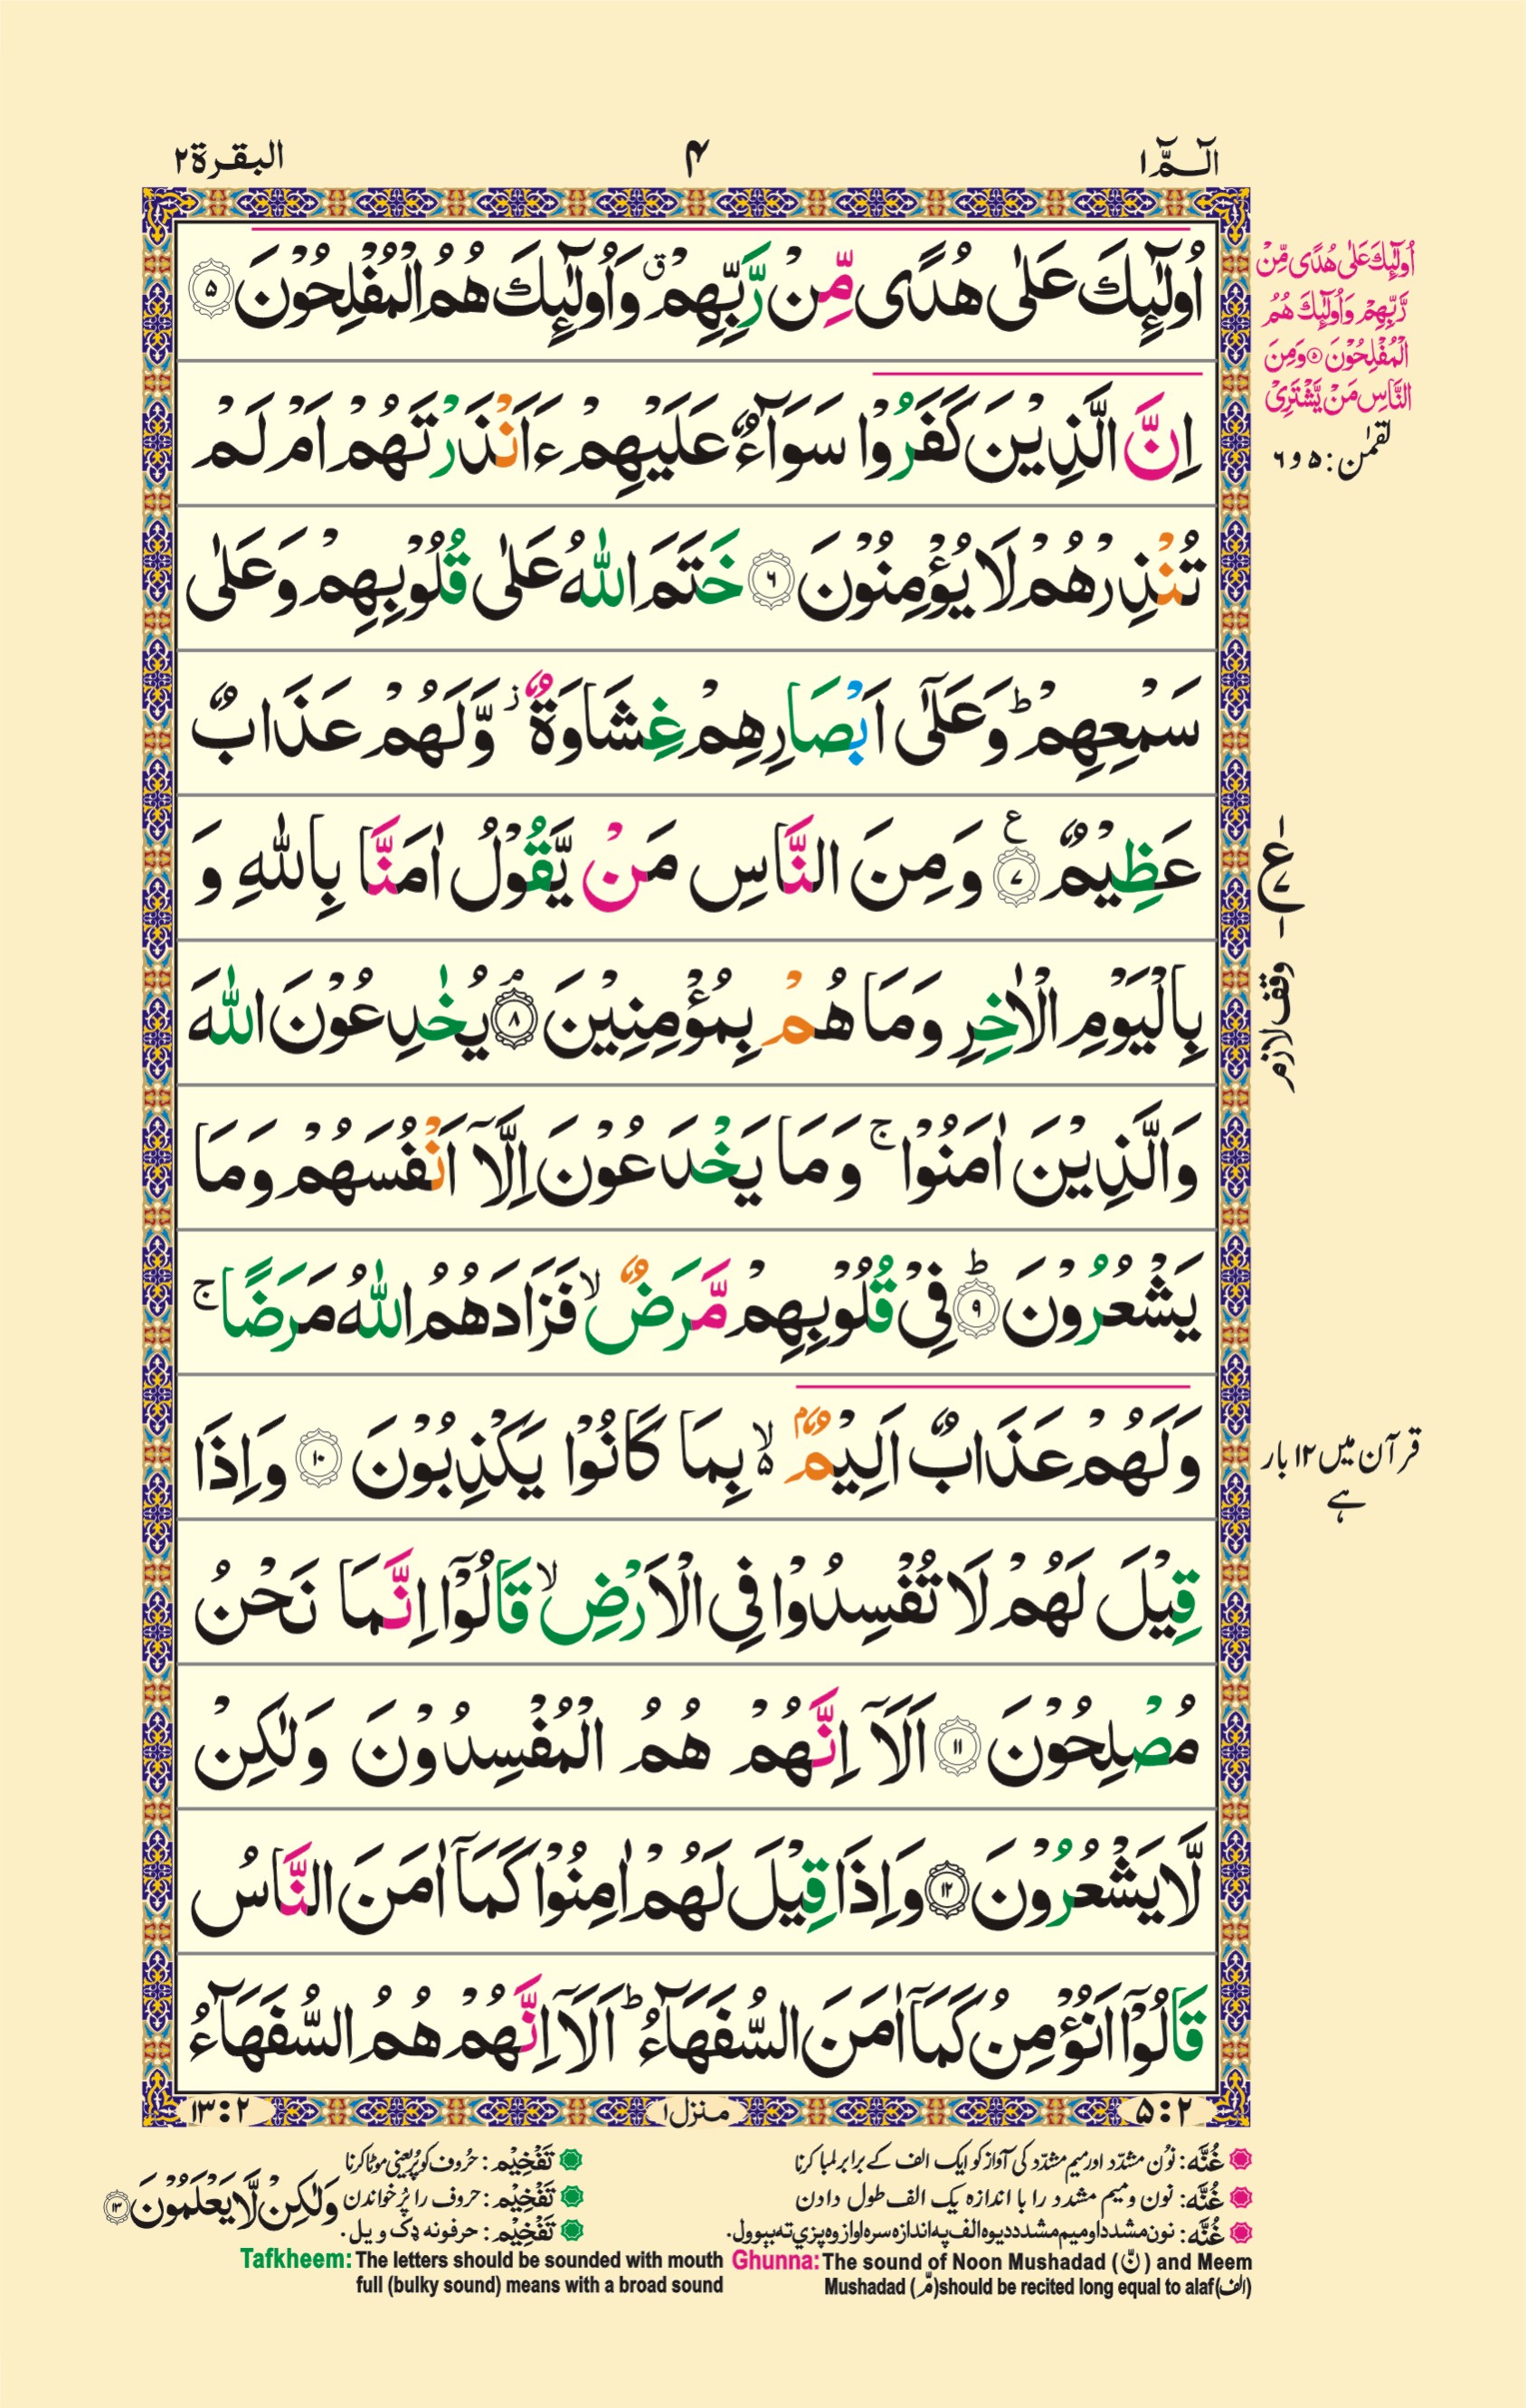 الٓمّٓ ١
۴
البقرة ٢
اُولٰٓئِكَ عَلٰى هُدًى مِّنْ رَّبِّهِمْ ۗ وَاُولٰٓئِكَ هُمُ الْمُفْلِحُوْنَ ۝۵
اِنَّ الَّذِيْنَ كَفَرُوْا سَوَآءٌ عَلَيْهِمْ ءَاَنْذَرْتَهُمْ اَمْ لَمْ
تُنْذِرْهُمْ لَا يُؤْمِنُوْنَ ۝۶ خَتَمَ اللّٰهُ عَلٰى قُلُوْبِهِمْ وَعَلٰى
سَمْعِهِمْ ؕ وَعَلٰٓى اَبْصَارِهِمْ غِشَاوَةٌ ؗ وَّلَهُمْ عَذَابٌ
عَظِيْمٌ ۝۷ۧ وَمِنَ النَّاسِ مَنْ يَّقُوْلُ اٰمَنَّا بِاللّٰهِ وَ
بِالْيَوْمِ الْاٰخِرِ وَمَا هُمْ بِمُؤْمِنِيْنَ ۝۸ۘ يُخٰدِعُوْنَ اللّٰهَ
وَالَّذِيْنَ اٰمَنُوْا ۚ وَمَا يَخْدَعُوْنَ اِلَّآ اَنْفُسَهُمْ وَمَا
يَشْعُرُوْنَ ۝۹ؕ فِيْ قُلُوْبِهِمْ مَّرَضٌ ۙ فَزَادَهُمُ اللّٰهُ مَرَضًا ۚ
وَلَهُمْ عَذَابٌ اَلِيْمٌۢ ۙ۬ بِمَا كَانُوْا يَكْذِبُوْنَ ۝۱۰ وَاِذَا
قِيْلَ لَهُمْ لَا تُفْسِدُوْا فِى الْاَرْضِ ۙ قَالُوْٓا اِنَّمَا نَحْنُ
مُصْلِحُوْنَ ۝۱۱ اَلَآ اِنَّهُمْ هُمُ الْمُفْسِدُوْنَ وَلٰكِنْ
لَّا يَشْعُرُوْنَ ۝۱۲ وَاِذَا قِيْلَ لَهُمْ اٰمِنُوْا كَمَآ اٰمَنَ النَّاسُ
قَالُوْٓا اَنُؤْمِنُ كَمَآ اٰمَنَ السُّفَهَآءُ ؕ اَلَآ اِنَّهُمْ هُمُ السُّفَهَآءُ
اُولٰٓئِكَ عَلٰى هُدًى مِّنْ
رَّبِّهِمْ وَاُولٰٓئِكَ هُمُ
الْمُفْلِحُوْنَ ۝۵ وَمِنَ
النَّاسِ مَنْ يَّشْتَرِىْ
لقمٰن: ۵ و ۶
ع
۷
وقف لازم
قرآن میں ۱۲ بار
ہے
۵:۲
منزل ۱
۱۳:۲
غُنَّه: نوُن مشدّد اور میم مشدّد کی آواز کو ایک الف کے برابر لمبا کرنا
غُنَّه: نون و میم مشدد را با اندازه یک الف طول دادن
غُنَّه: نون مشدد او میم مشدد دیوه الف په اندازه سره اواز وه پزې ته بېوول.
Ghunna: The sound of Noon Mushadad (نّ) and Meem
Mushadad (مّ) should be recited long equal to alaf (الف)
تَفْخِيْم: حرُوف کو پُر یعنی موٹا کرنا
تَفْخِيْم: حروف را پُر خواندن
تَفْخِيْم: حرفونه ډک ویل.
Tafkheem: The letters should be sounded with mouth
full (bulky sound) means with a broad sound
وَلٰكِنْ لَّا يَعْلَمُوْنَ ۝۱۳